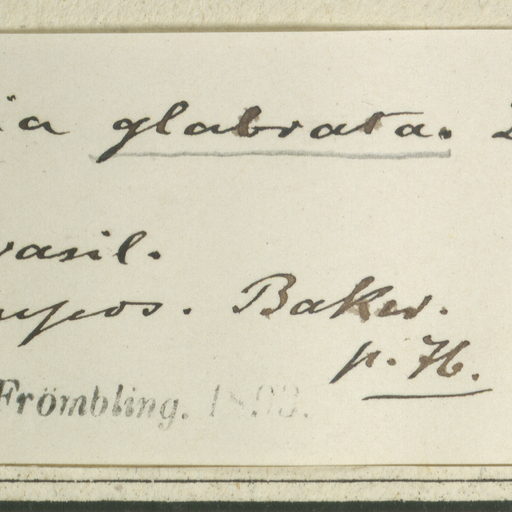 ia glabrata.
rasil.
mpos. Baker.
p. 76.
Frömbling. 1893.